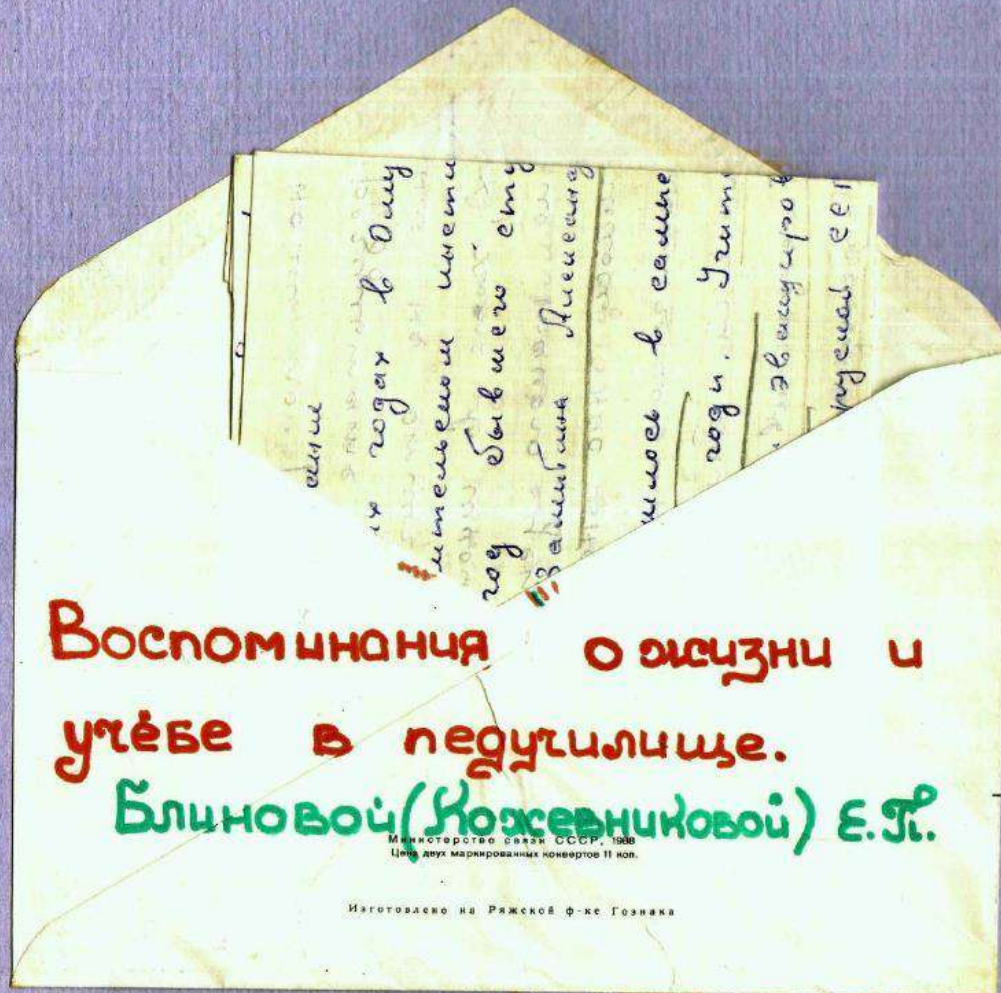 годах в
год бывшего сту
в самые
годы. Учит
эвакуиров
Воспоминания о жизни и
учёбе в педучилище.
Блиновой (Кожевниковой) Е.П.
Министерство связи СССР, 1988
Цена двух маркированных конвертов 11 коп.
Изготовлено на Ряжской ф-ке Гознака